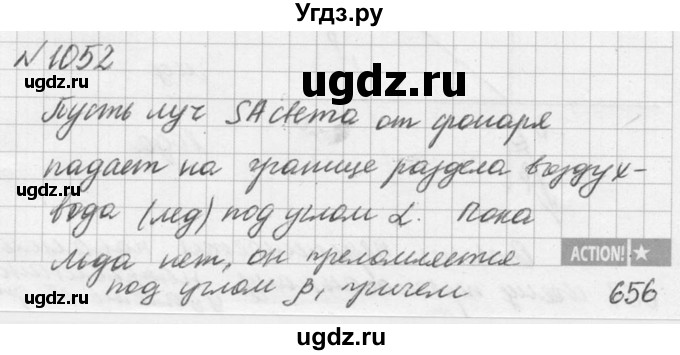 Угдз.ру
№1052
ugdz.ru
ugdz.ru
ugdz.ru
Пусть луч SA света от фонаря
падает на границе раздела воздух-
ugdz.ru
вода (лед) под углом α. Пока
ugdz.ru
льда нет, он преломляется
ACTION!
ugdz.ru
под углом β, причем
656